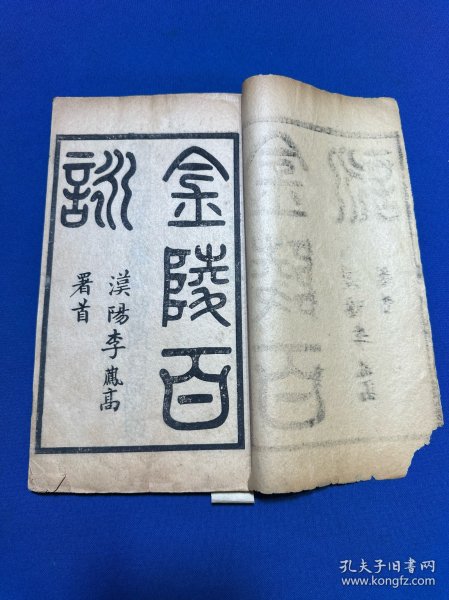 金陵百
詠
漢陽李鳳高
署首
孔夫子旧书网
www.kongfz.com